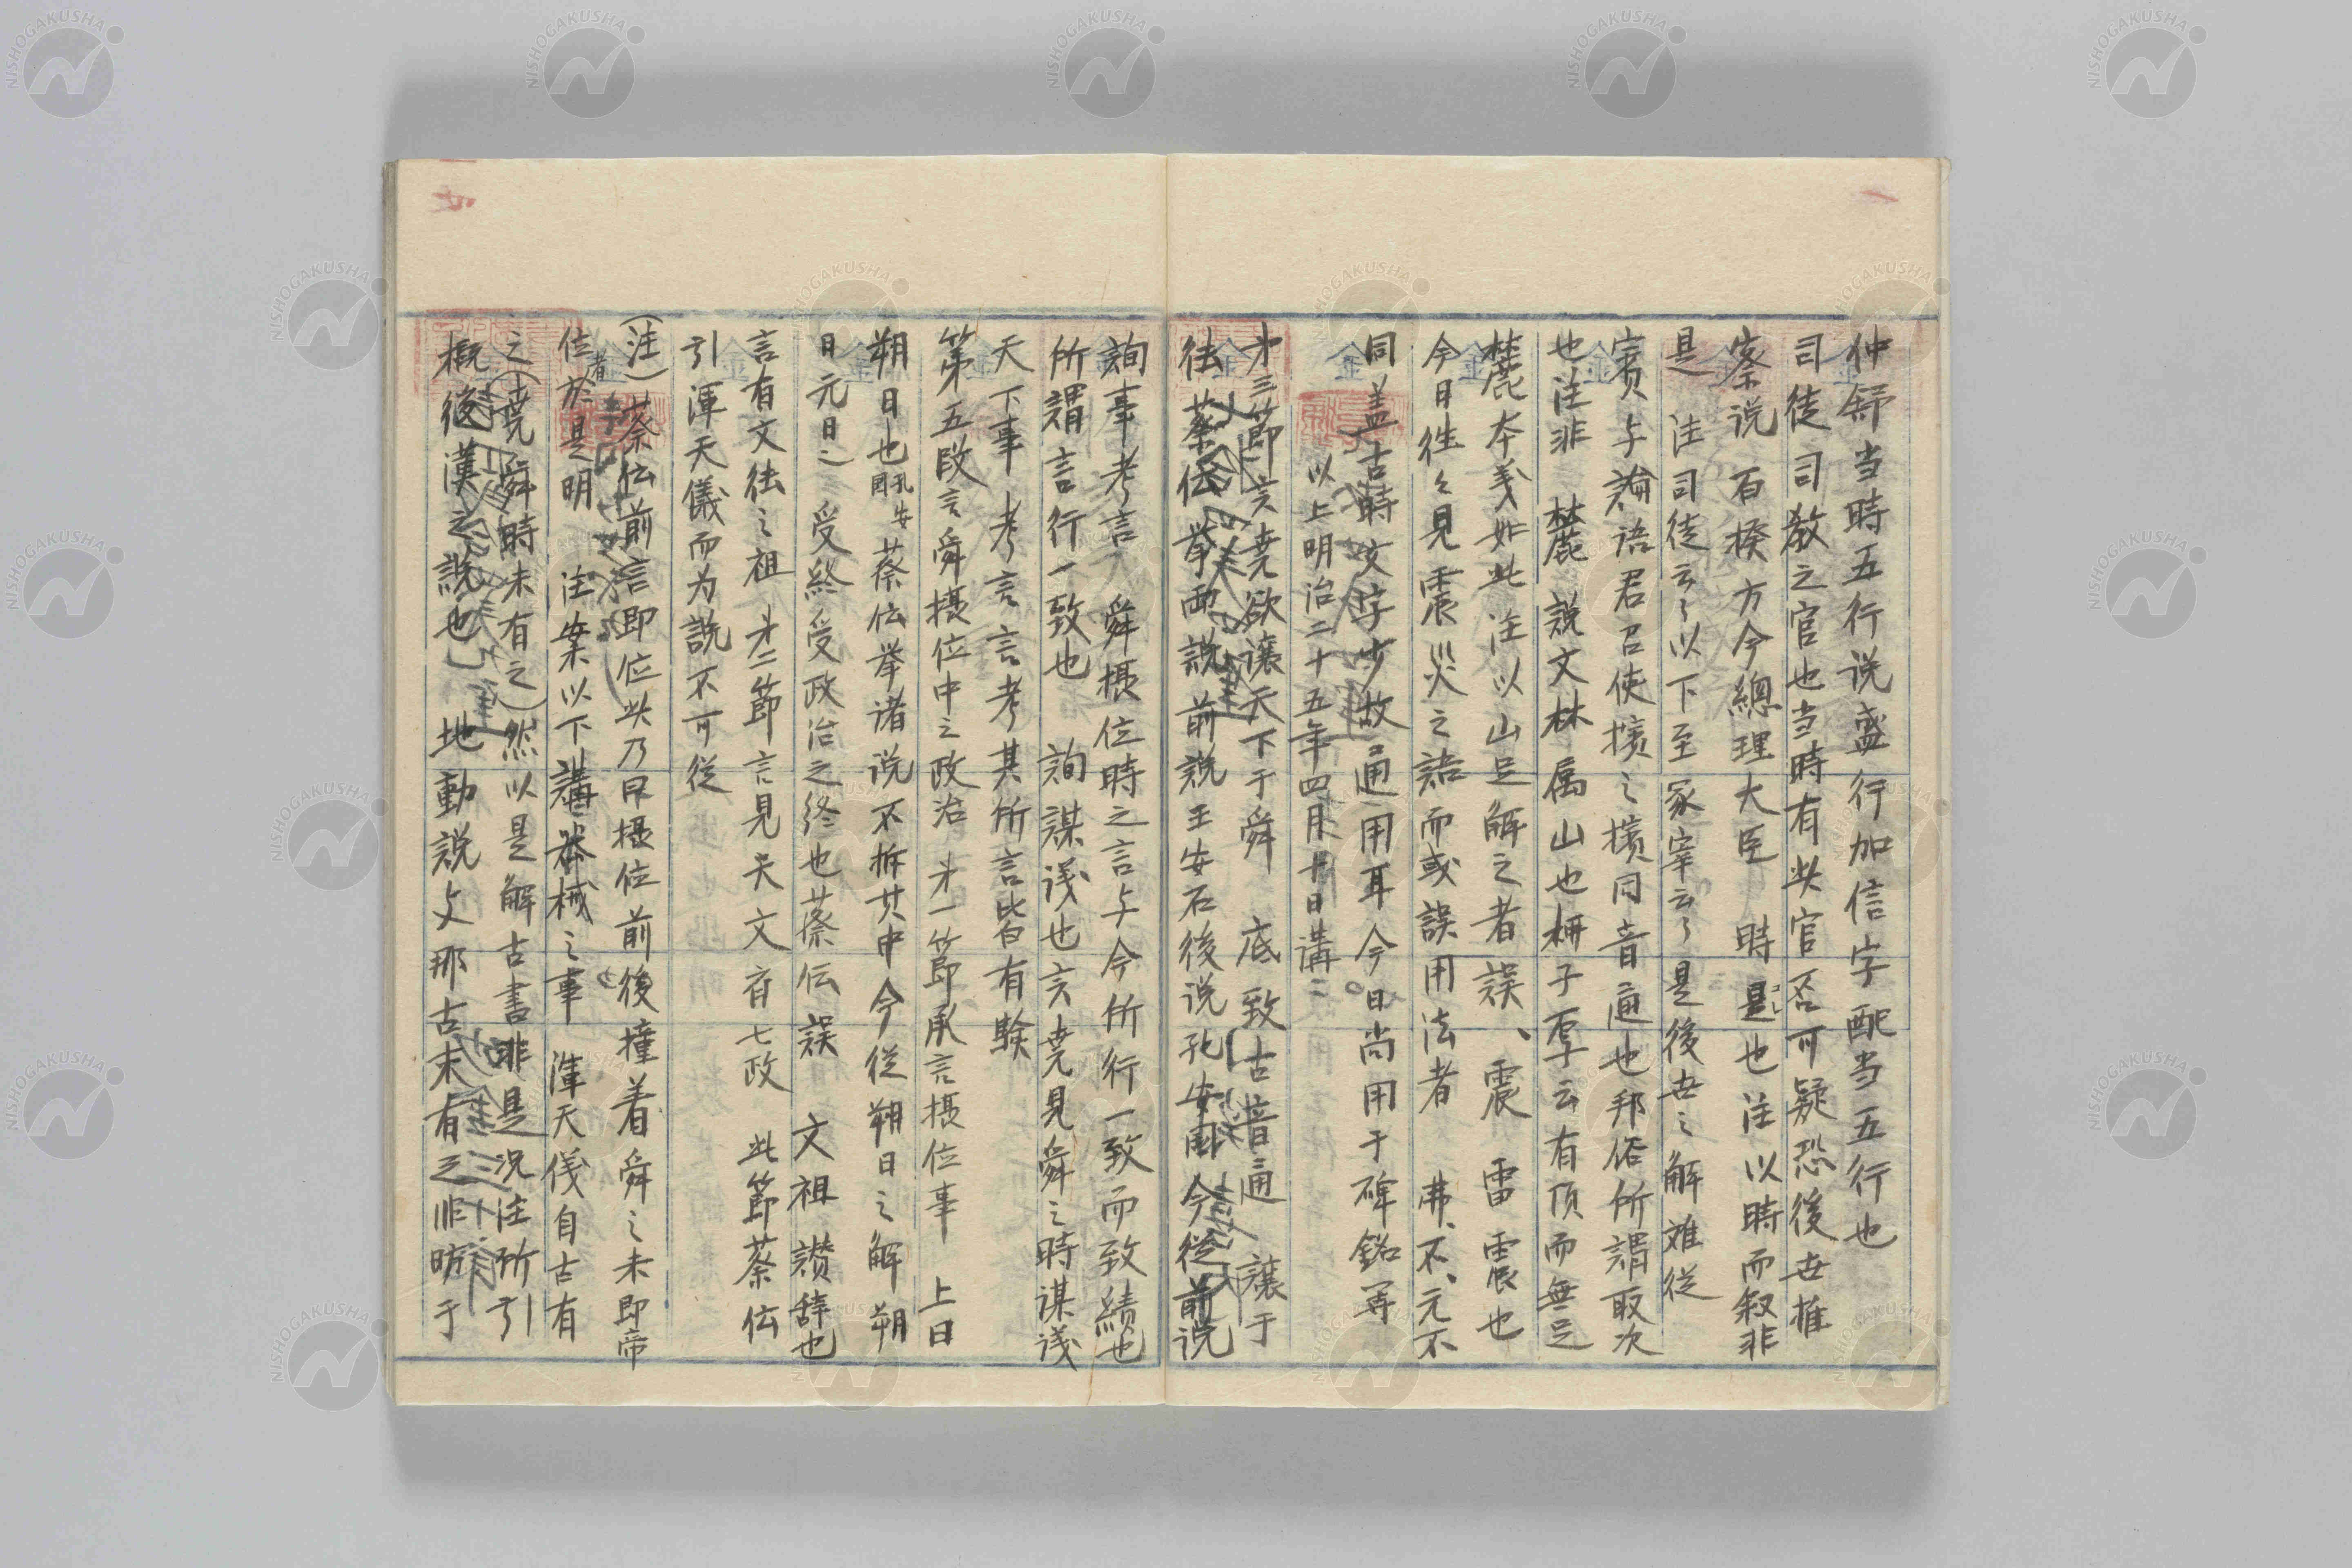 仲舒当時五行说盛行加信字配当五行也
司徒司教之官也当時有此官否可疑恐後世推
蔡说 百揆方今總理大臣 時是也注以時而叙非
是 注司徒云々以下至冢宰云々是後世之解难従
賓与論語君召使擯之擯同音通也邦俗所謂取次
也注非 麓 説文林属山也柳子厚云有頂而無足
麓本義如此注以山足解之者誤、震 雷震也
今日徃々見震災之語而或誤用法者 弗、不、元不
同盖古時文字少故通用耳今日尚用于碑銘等
以上明治二十五年四月十日講
才三節言堯欲譲天下于舜 底 致古音通 譲于
徳蔡伝挙両説前説王安石後说孔安国今従前说
詢事考言 舜摂位時之言与今所行一致而致績也
所謂言行一致也 詢 謀议也言堯見舜之時謀议
天下事 考言 言考其所言皆有験
第五段言舜摂位中之政治 才一節承言摂位事 上日
朔日也孔安国 蔡伝挙诸说不拆其中今従朔日之解朔
日元日 受終受政治之终也蔡伝誤 文祖 讃辞也
言有文徳之祖 才二節言見天文 斉七政 此節蔡伝
引渾天儀而为説不可従
(注)蔡伝前言即位此乃曰摂位前後撞着舜之未即帝
位者於是明 注案以下講器械之事 渾天儀自古有
之(堯舜時未有之)然以是解古書非是况注所引
概後漢之説也 地動説支那古未有之非昉于